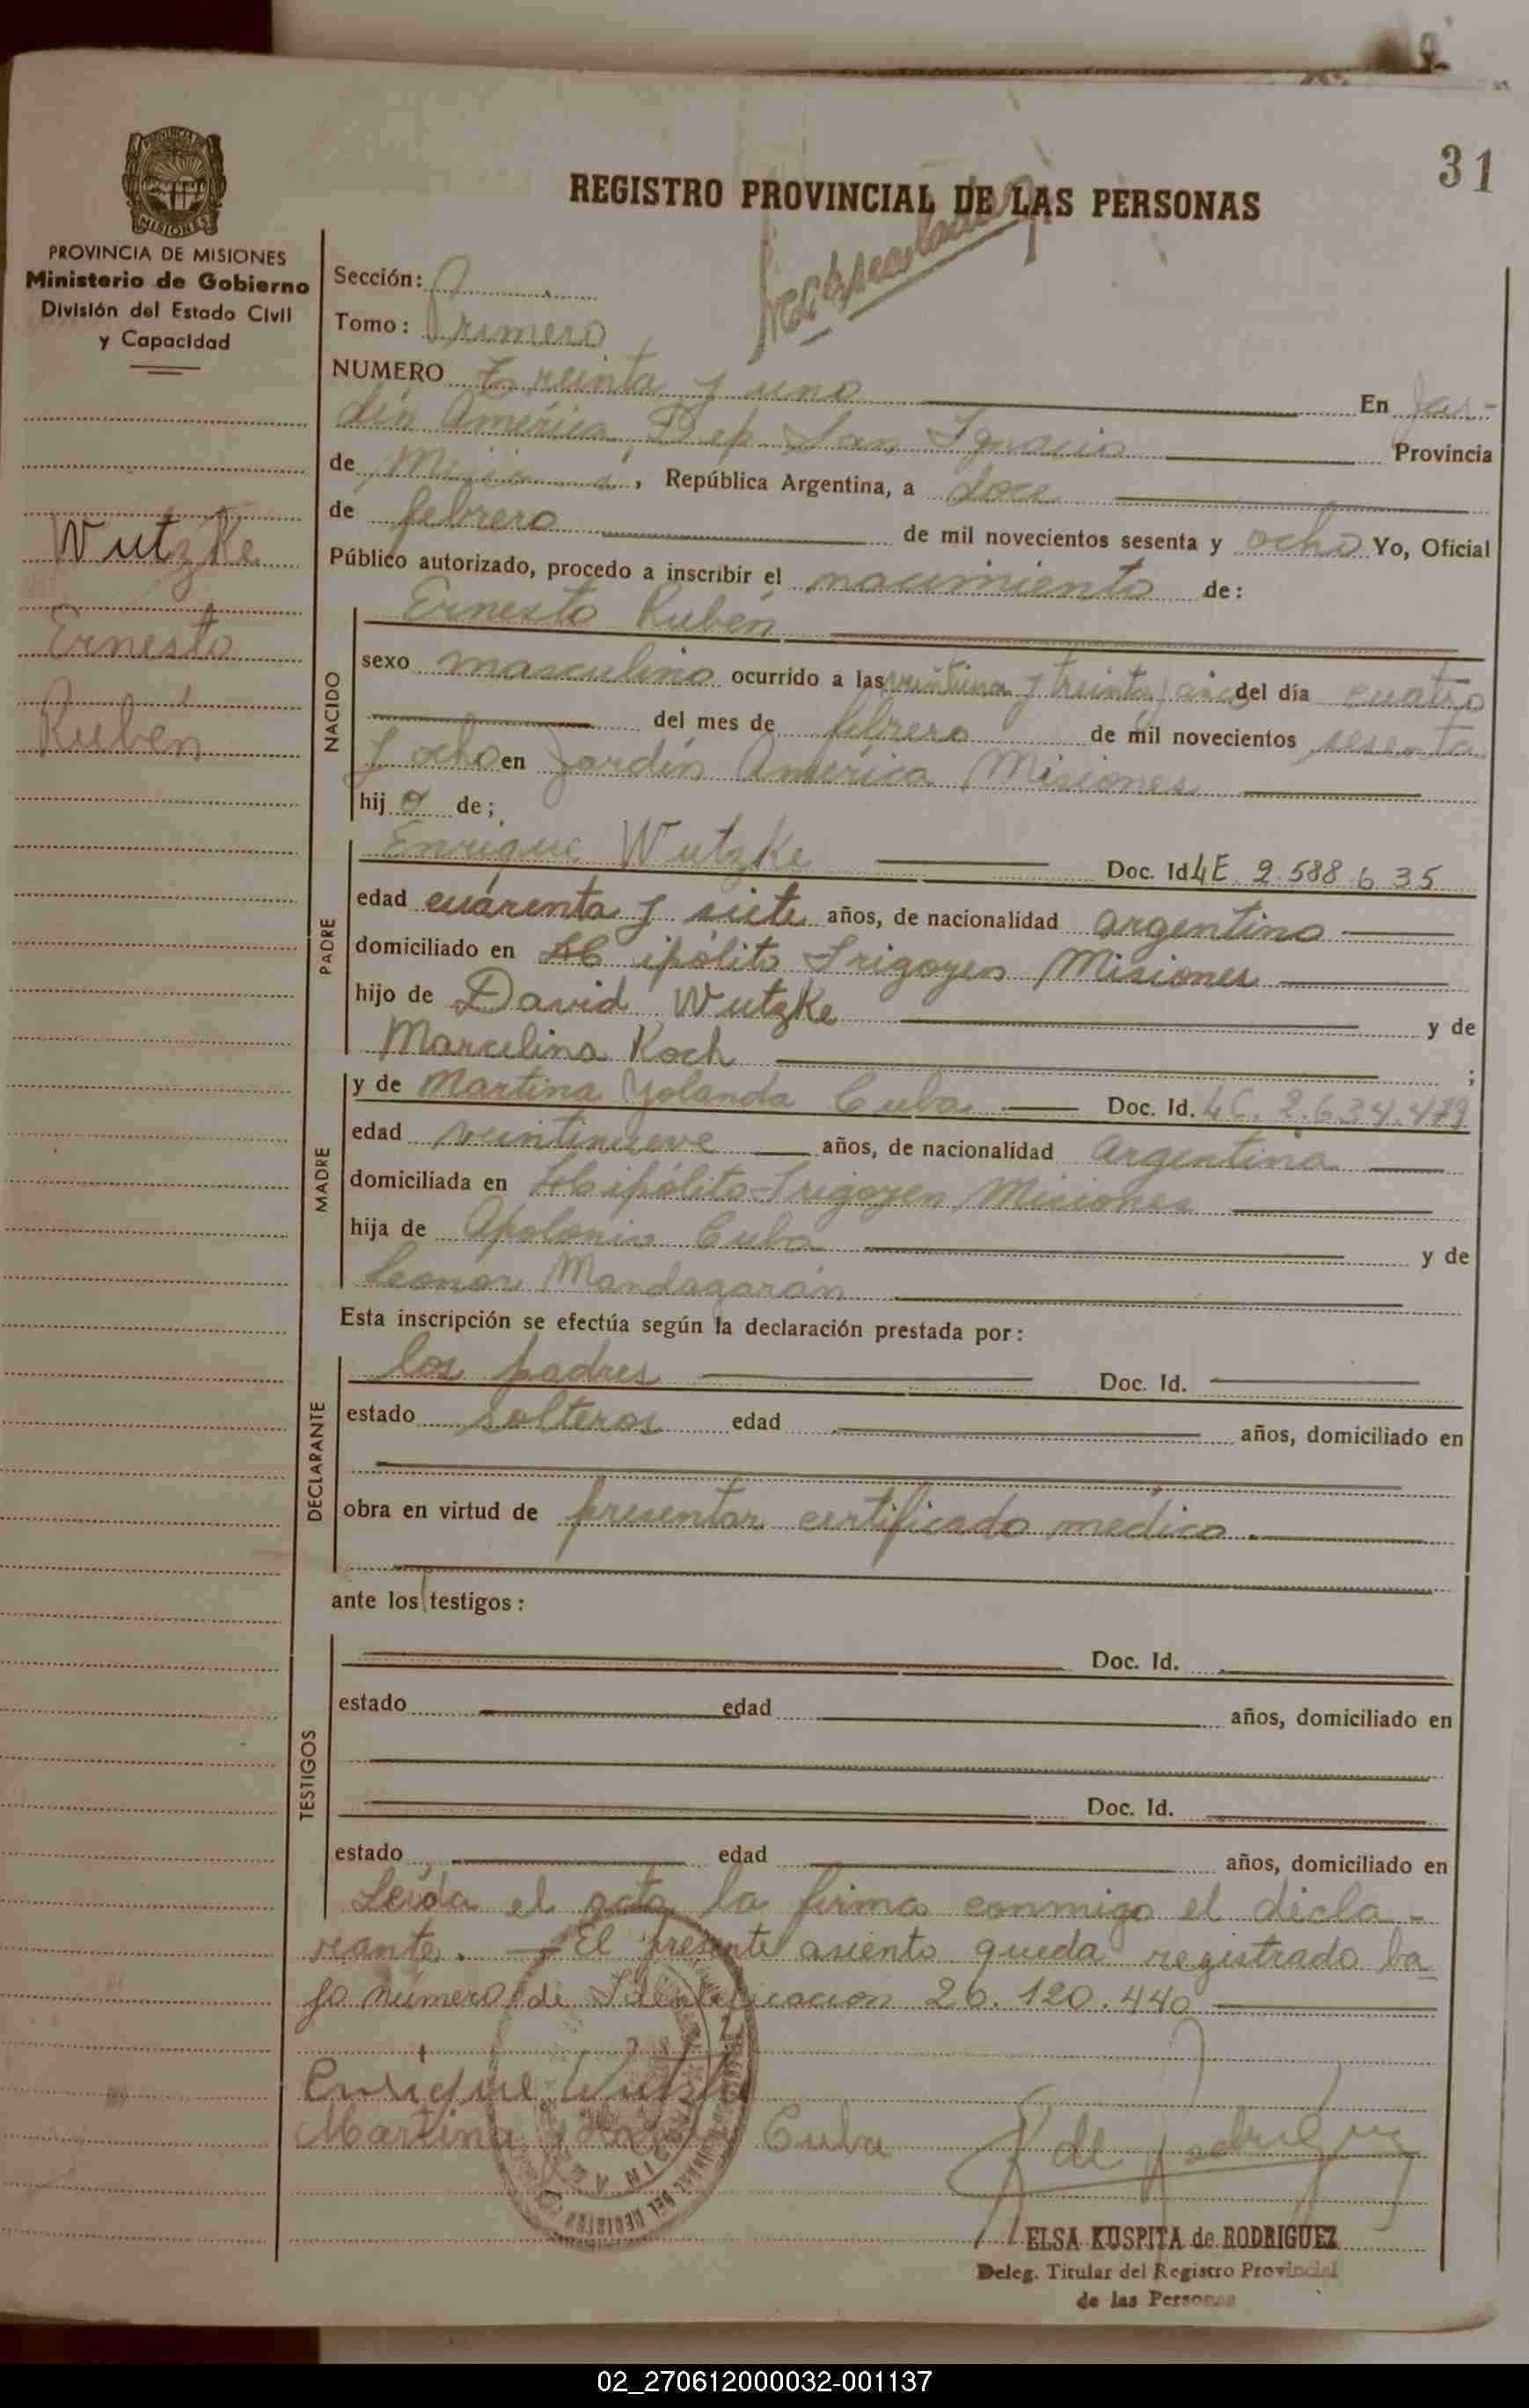 31
REGISTRO PROVINCIAL DE LAS PERSONAS
PROVINCIA DE MISIONES
Ministerio de Gobierno
División del Estado Civil
y Capacidad
Wutzke
Ernesto
Rubén
Sección:
Tomo: Primero
NUMERO Treinta y uno En Jar-
dín América, Dep. San Ignacio Provincia
de Misiones, República Argentina, a doce
de febrero de mil novecientos sesenta y ocho Yo, Oficial
Público autorizado, procedo a inscribir el nacimiento de:
Ernesto Rubén
NACIDO
sexo masculino ocurrido a las veintiuna y treinta del día cuatro
del mes de febrero de mil novecientos sesenta
y ocho en Jardín América Misiones
hij o de;
PADRE
Enrique Wutzke Doc. Id. 2.588.635
edad cuárenta y siete años, de nacionalidad argentino
domiciliado en Hipólito Irigoyen Misiones
hijo de David Wutzke y de
Marcelina Koch ;
MADRE
y de Martina Yolanda Cuba Doc. Id. LC. 2.634.479
edad veintinueve años, de nacionalidad Argentina
domiciliada en Hipólito Irigoyen Misiones
hija de Apolonio Cuba y de
Leonor Mandagarán
Esta inscripción se efectúa según la declaración prestada por:
DECLARANTE
los padres Doc. Id.
estado solteros edad años, domiciliado en
obra en virtud de presentar certificado médico.
ante los testigos:
TESTIGOS
Doc. Id.
estado edad años, domiciliado en
Doc. Id.
estado edad años, domiciliado en
Leída el acta la firma conmigo el decla-
rante. — El presente asiento queda registrado ba_
jo número de Identificación 20.120.440
Enrique Wutzke
Martina Cuba
ELSA KUSPITA de RODRIGUEZ
Deleg. Titular del Registro Provincial
de las Personas
02_270612000032-001137